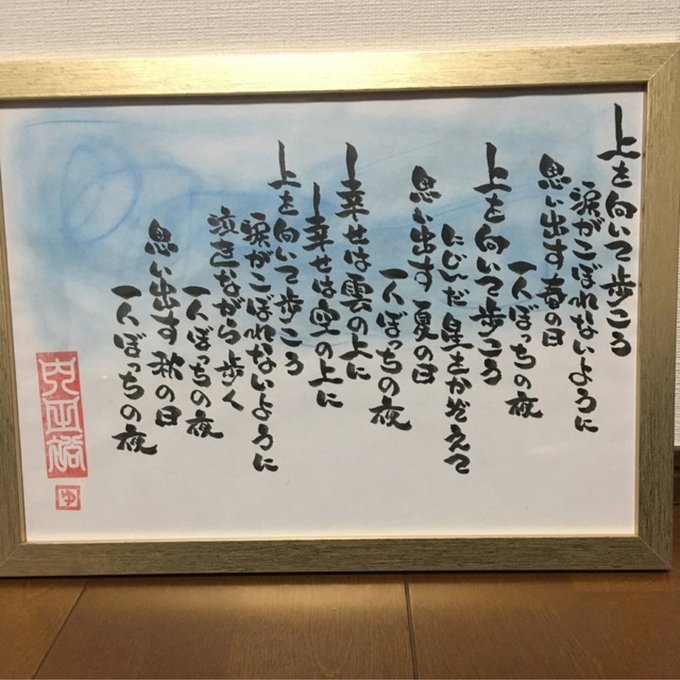 上を向いて歩こう
涙がこぼれないように
思い出す春の日
一人ぼっちの夜
上を向いて歩こう
にじんだ星をかぞえて
思い出す夏の日
一人ぼっちの夜
幸せは雲の上に
幸せは空の上に
上を向いて歩こう
涙がこぼれないように
泣きながら歩く
一人ぼっちの夜
思い出す秋の日
一人ぼっちの夜
ゆ